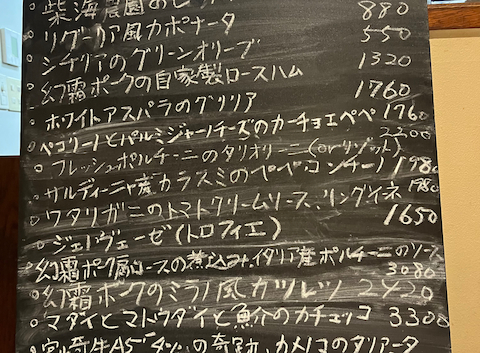 柴海農園の
リグーリア風カポナータ 880
シチリアのグリーンオリーブ 550
幻霜ポークの自家製ロースハム 1320
ホワイトアスパラのグリリア 1760
ペコリーノとパルミジャーノチーズのカーチョエペペ 1760
フレッシュポルチーニのタリオリーニ(orリゾット) 2200
サルディーニャ産カラスミのペペロンチーノ 1980
ワタリガニのトマトクリームソース、リングイネ 1980
ジェノヴェーゼ(トロフィエ) 1650
幻霜ポーク肩ロースの煮込み、イタリア産ポルチーニのソース
3080
幻霜ポークのミラノ風カツレツ 2420
マダイとマトウダイと魚介のカチュッコ 3300
宮崎牛A5 の カメノコのタリアータ